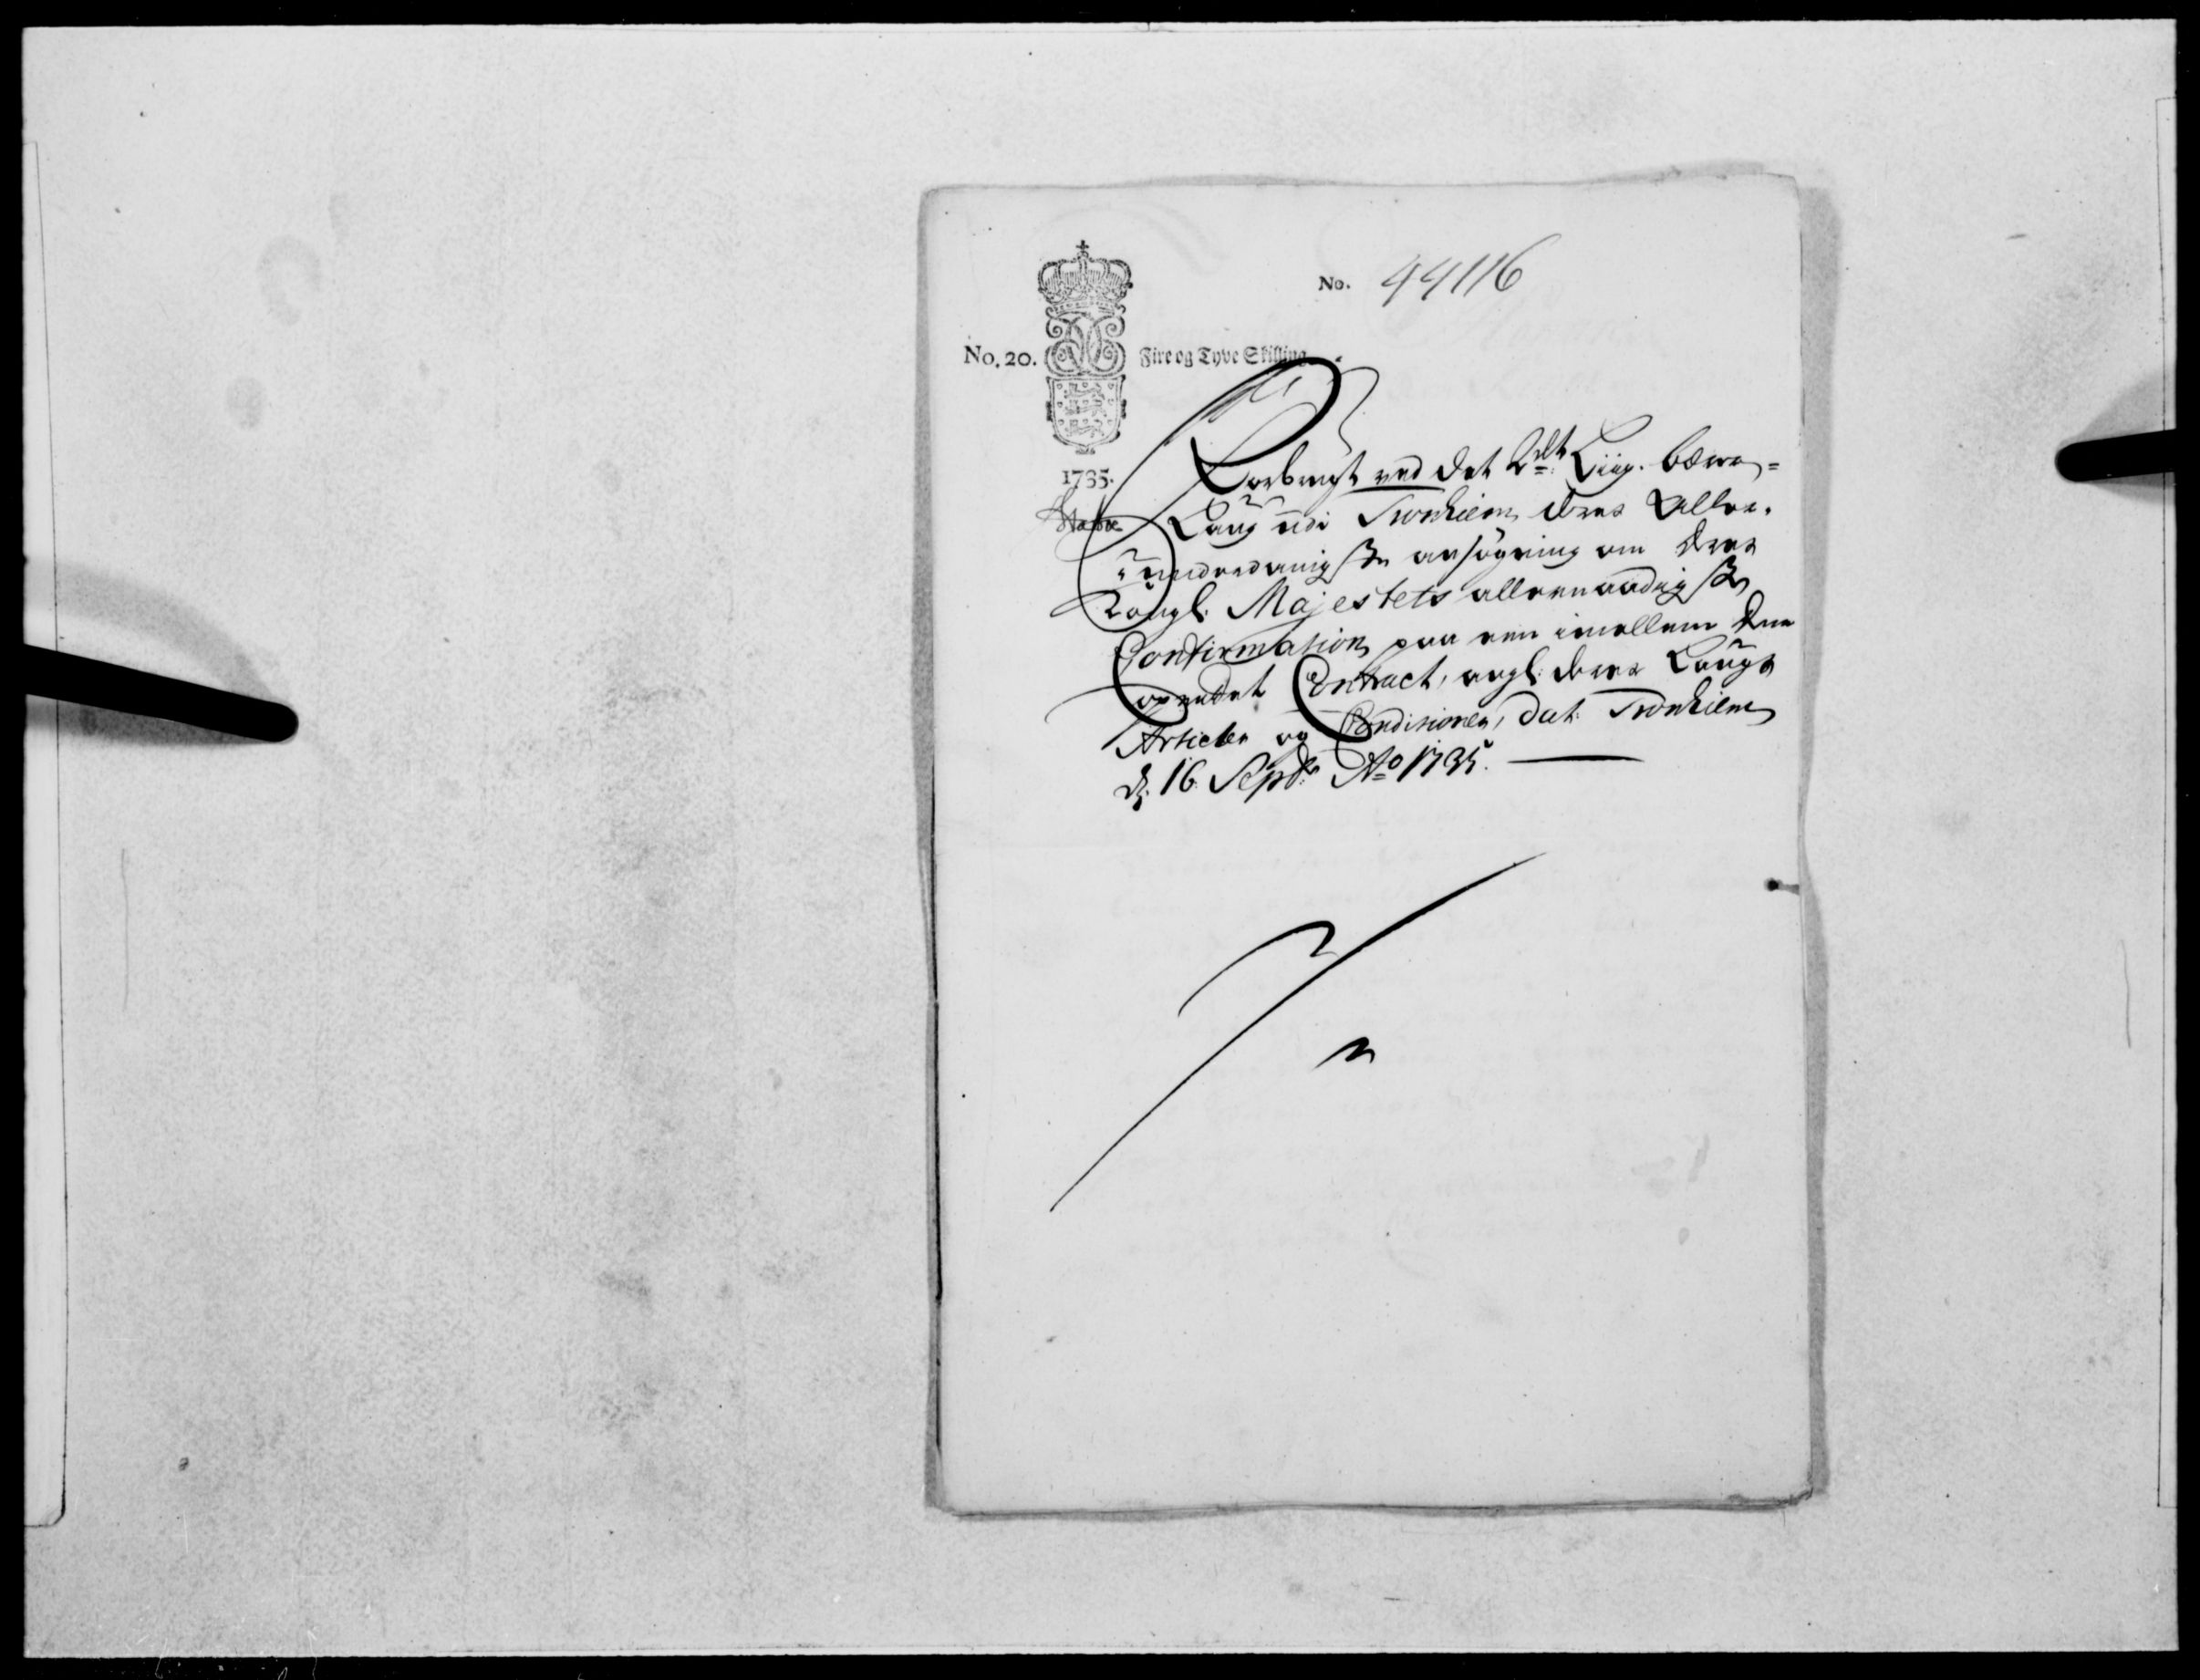 No. 44116
No. 20. Fire og Tyve Skilling
1735.
ved det 2det Liig-bære-
Laug udi Tronhiem deres Aller-
underdanigste ansögning om Deres
Kongl: Majestets allernaadigste
Confirmation paa een imellem dem
oprettet Contract, angl: deres Laugs
Articler og Conditioner, dat: Tronhiem
d: 16 Septr Ao 1735.